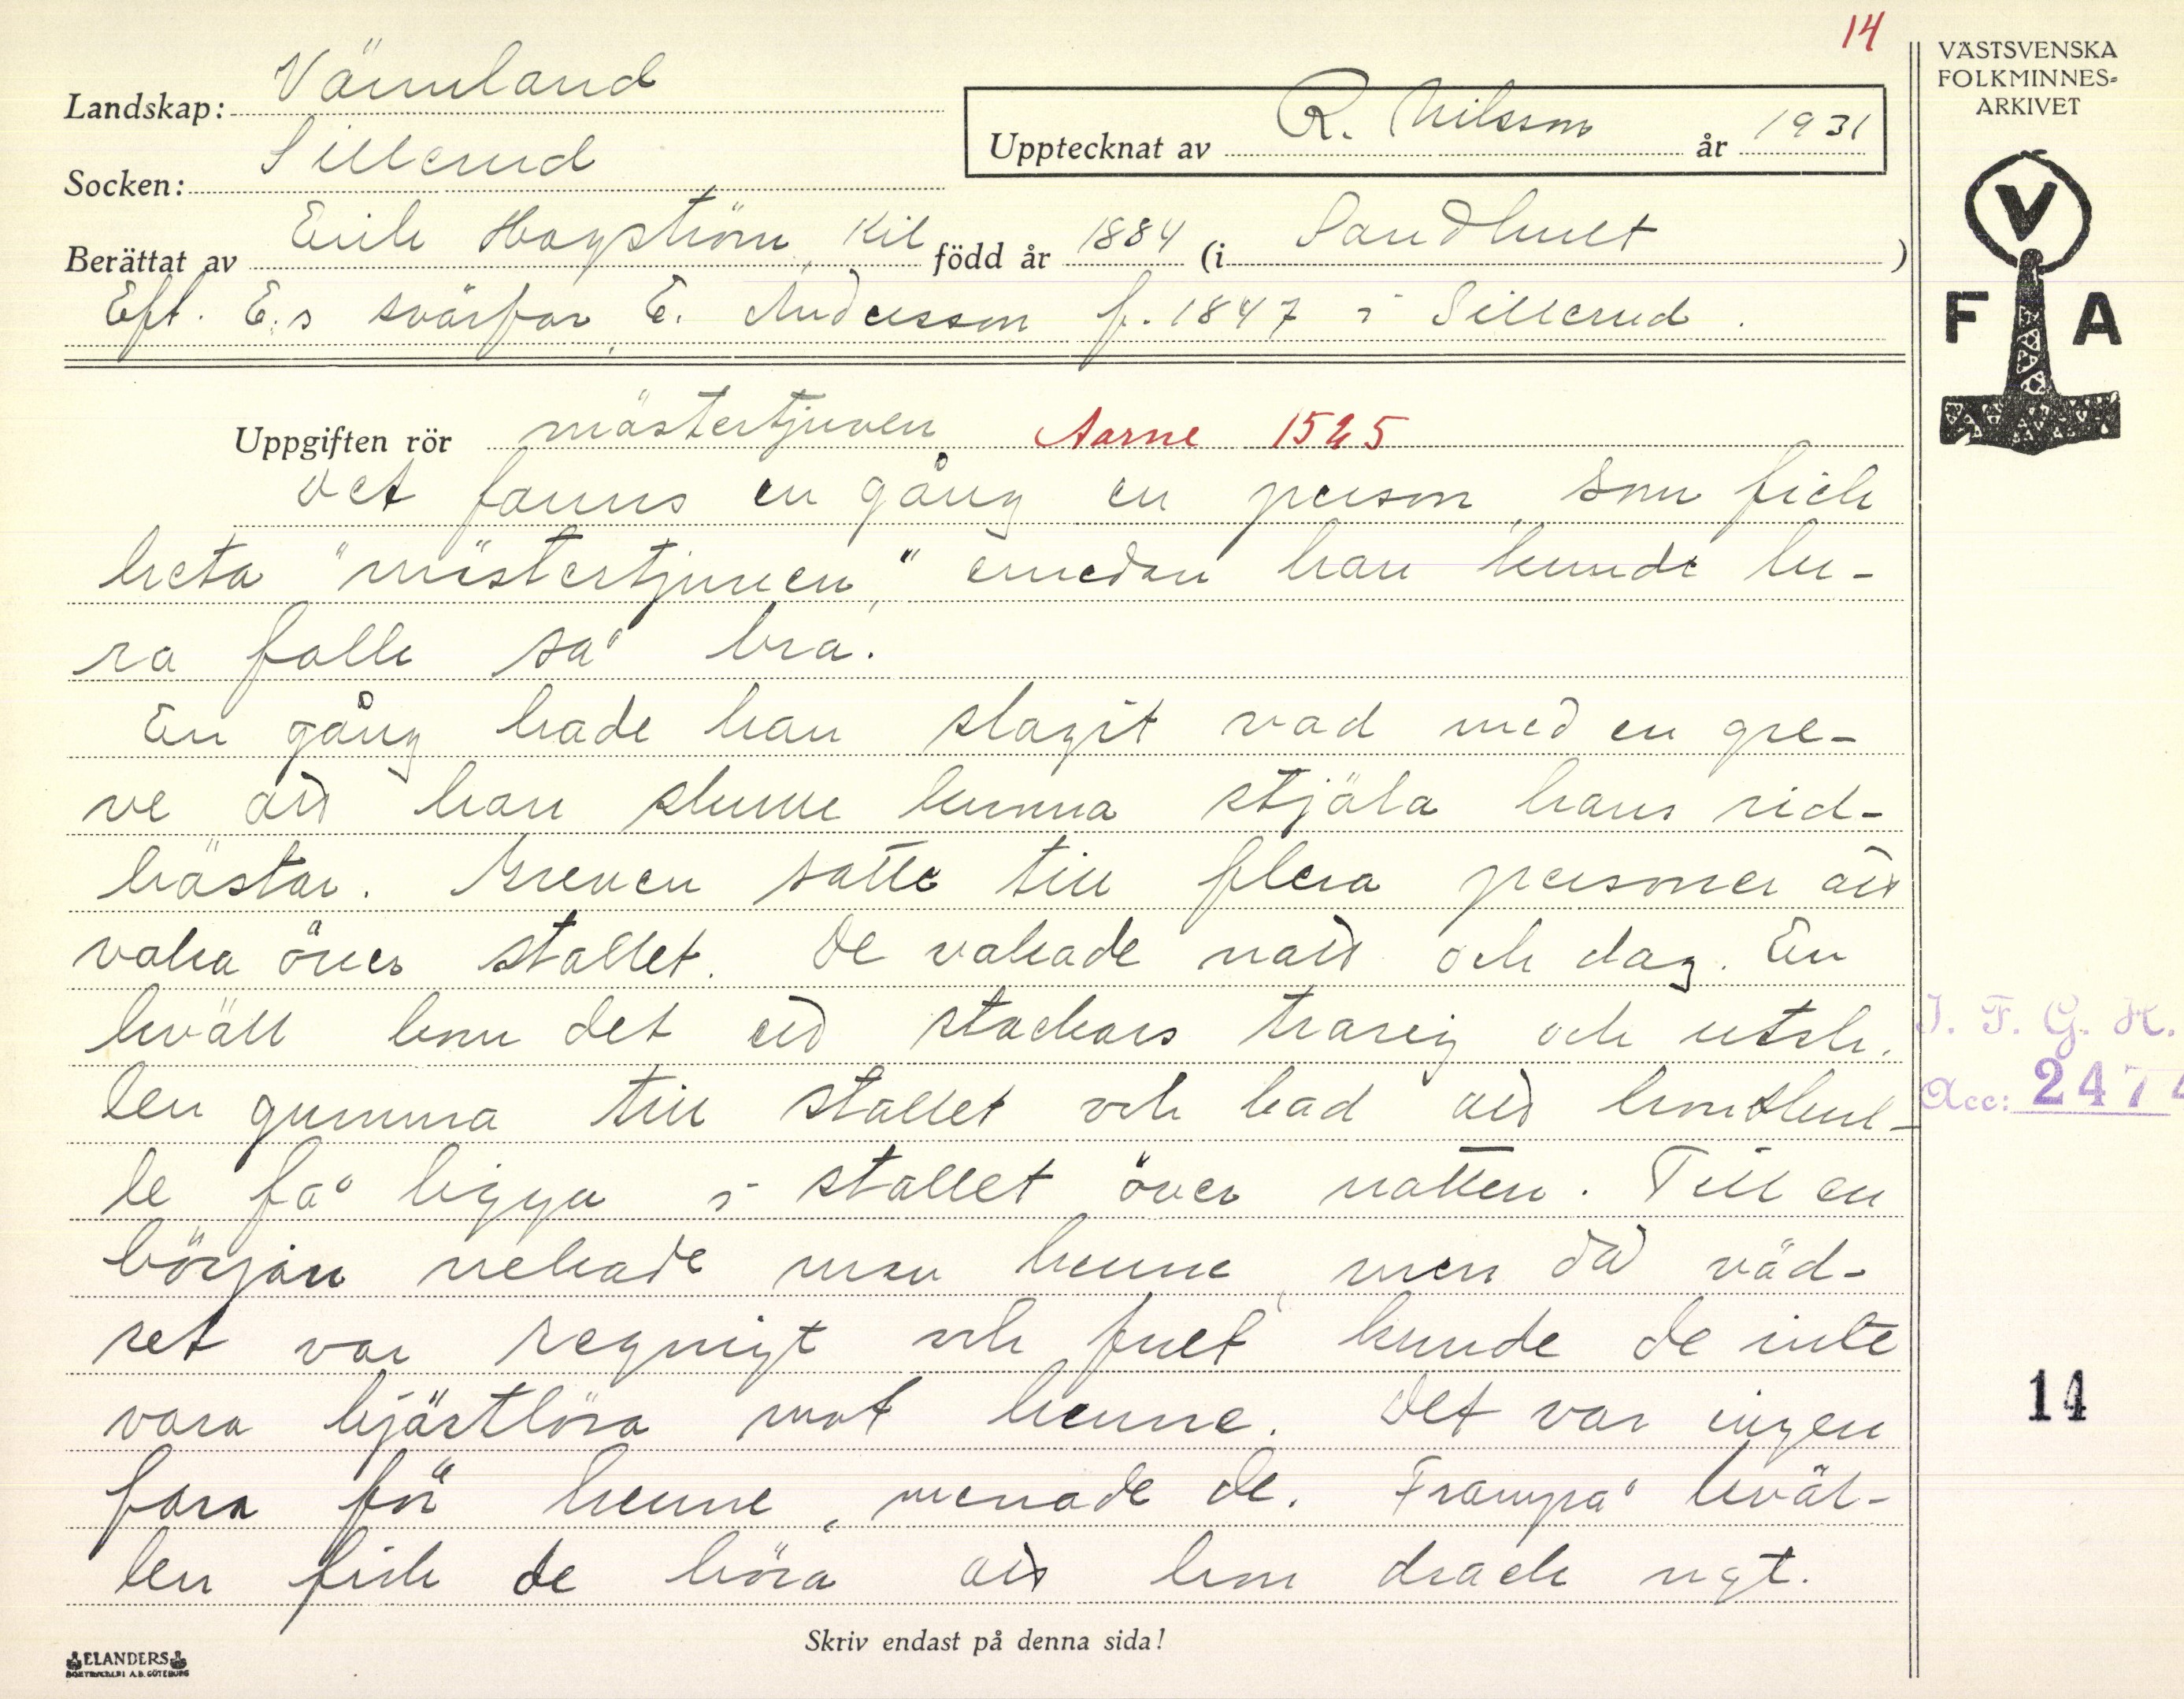 14
VÄSTSVENSKA
FOLKMINNES-
ARKIVET
Landskap: Värmland
Upptecknat av R. Nilsson år 1931
Socken: Sillerud
Berättat av Erik Hagström, Kil född år 1884 (i Sandhult)
Eft. E:s svärfar, E. Andersson f. 1847 i Sillerud.
V
F A
Uppgiften rör mästertjuven Aarne 1525
Det fanns en gång en person, som fick
heta "mästertjuven," emedan han kunde lu-
ra folk så bra.
En gång hade han slagit vad med en gre-
ve att han skulle kunna stjäla hans rid-
hästar. Greven satte till flera personer att
vaka över stallet. De vakade natt och dag. En
kväll kom det ett stackars trasig och utsl.
len gumma till stallet och bad att hon skul-
le få ligga i stallet över natten. Till en
början nekade man henne, men då väd-
ret var regnigt och fult kunde de inte
vara hjärtlösa mot henne. Det var ingen
fara för henne, menade de. Frampå kväl-
len fick de höra att hon drack ngt.
I. F. G. H.
Acc: 2474
14
Skriv endast på denna sida!
ELANDERS
BOKTRYCKERI A.B. GÖTEBORG